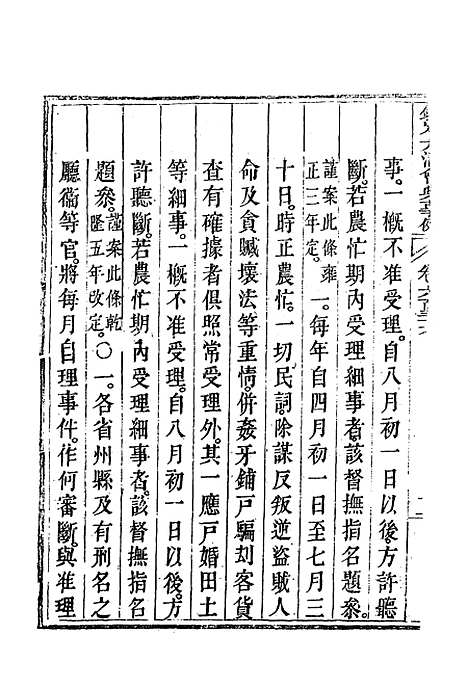 事。一概不准受理。自八月初一日以後。方許聽
斷。若農忙期內受理細事者。該督撫指名題參。
謹案此條雍正三年定。一。每年自四月初一日至七月三
十日。時正農忙。一切民詞。除謀反叛逆盜賊人
命及貪贓壞法等重情。併姦牙鋪戶騙刦客貨
查有確據者。俱照常受理外。其一應戶婚田土
等細事。一概不准受理。自八月初一日以後。方
許聽斷。若農忙期內受理細事者。該督撫指名
題參。謹案此條乾隆五年改定。○一。各省州縣及有刑名之
廳衞等官。將每月自理事件。作何審斷。與准理